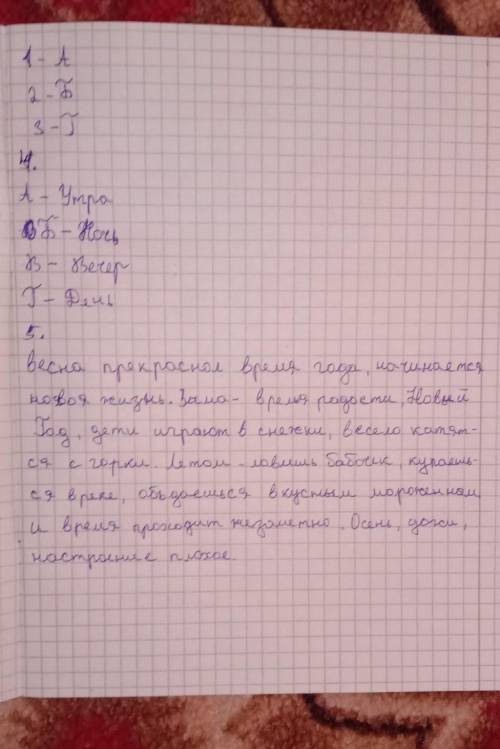 1 - А
2 - Б
3 - Г
4.
А - Утро
Б - Ночь
В - Вечер
Г - День
5.
весна прекрасное время года, начинается
новая жизнь. Зима - время радости, Новый
Год, дети играют в снежки, весело катят-
ся с горки. Летом - ловишь бабочек, купаешь-
ся в реке, объдаешься вкусным мороженном,
и время проходит незаметно. Осень, дожи,
настроение плохое.